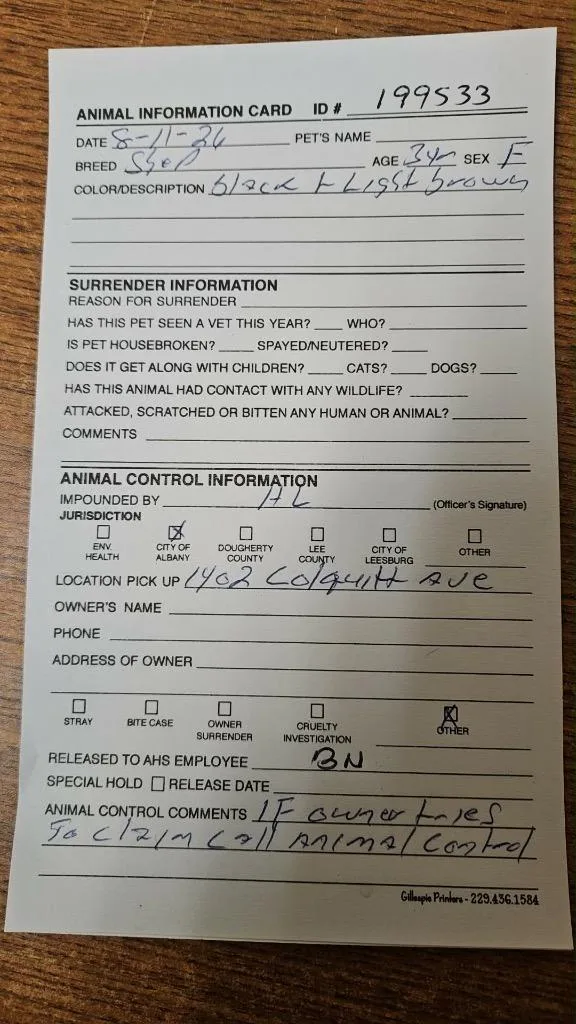 ANIMAL INFORMATION CARD ID # 199533
DATE 8-11-26 PET'S NAME
BREED Shep AGE 3yr SEX F
COLOR/DESCRIPTION black + Light brown
SURRENDER INFORMATION
REASON FOR SURRENDER
HAS THIS PET SEEN A VET THIS YEAR? WHO?
IS PET HOUSEBROKEN? SPAYED/NEUTERED?
DOES IT GET ALONG WITH CHILDREN? CATS? DOGS?
HAS THIS ANIMAL HAD CONTACT WITH ANY WILDLIFE?
ATTACKED, SCRATCHED OR BITTEN ANY HUMAN OR ANIMAL?
COMMENTS
ANIMAL CONTROL INFORMATION
IMPOUNDED BY AL (Officer's Signature)
JURISDICTION
ENV. HEALTH CITY OF ALBANY DOUGHERTY COUNTY LEE COUNTY CITY OF LEESBURG OTHER
LOCATION PICK UP 1402 Colquitt Ave
OWNER'S NAME
PHONE
ADDRESS OF OWNER
STRAY BITE CASE OWNER SURRENDER CRUELTY INVESTIGATION OTHER
RELEASED TO AHS EMPLOYEE BN
SPECIAL HOLD RELEASE DATE
ANIMAL CONTROL COMMENTS IF owner tries
To claim call Animal Control
Gillespie Printers - 229.436.1584